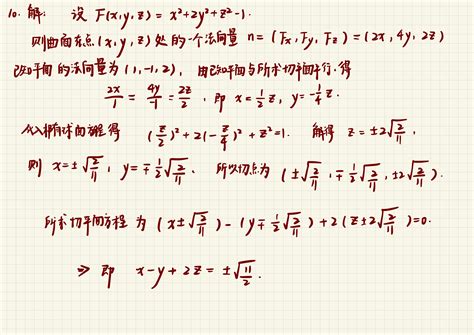 10. 解: 设 F(x,y,z) = x²+2y²+z²-1.
则曲面在点(x,y,z)处的一个法向量 n=(Fx, Fy, Fz)=(2x, 4y, 2z)
已知平面的法向量为(1,-1,2), 由已知平面与所求切平面平行.得
2x/1 = 4y/-1 = 2z/2, 即 x=½z, y=-¼z.
代入椭球面方程得 (z/2)²+2(-z/4)²+z²=1. 解得 z=±2√(2/11),
则 x=±√(2/11), y=∓½√(2/11). 所以切点为 (±√(2/11), ∓½√(2/11), ±2√(2/11)).
所求切平面方程为 (x±√(2/11)) - (y∓½√(2/11)) + 2(z±2√(2/11))=0.
⇒ 即 x-y+2z=±√(11/2).